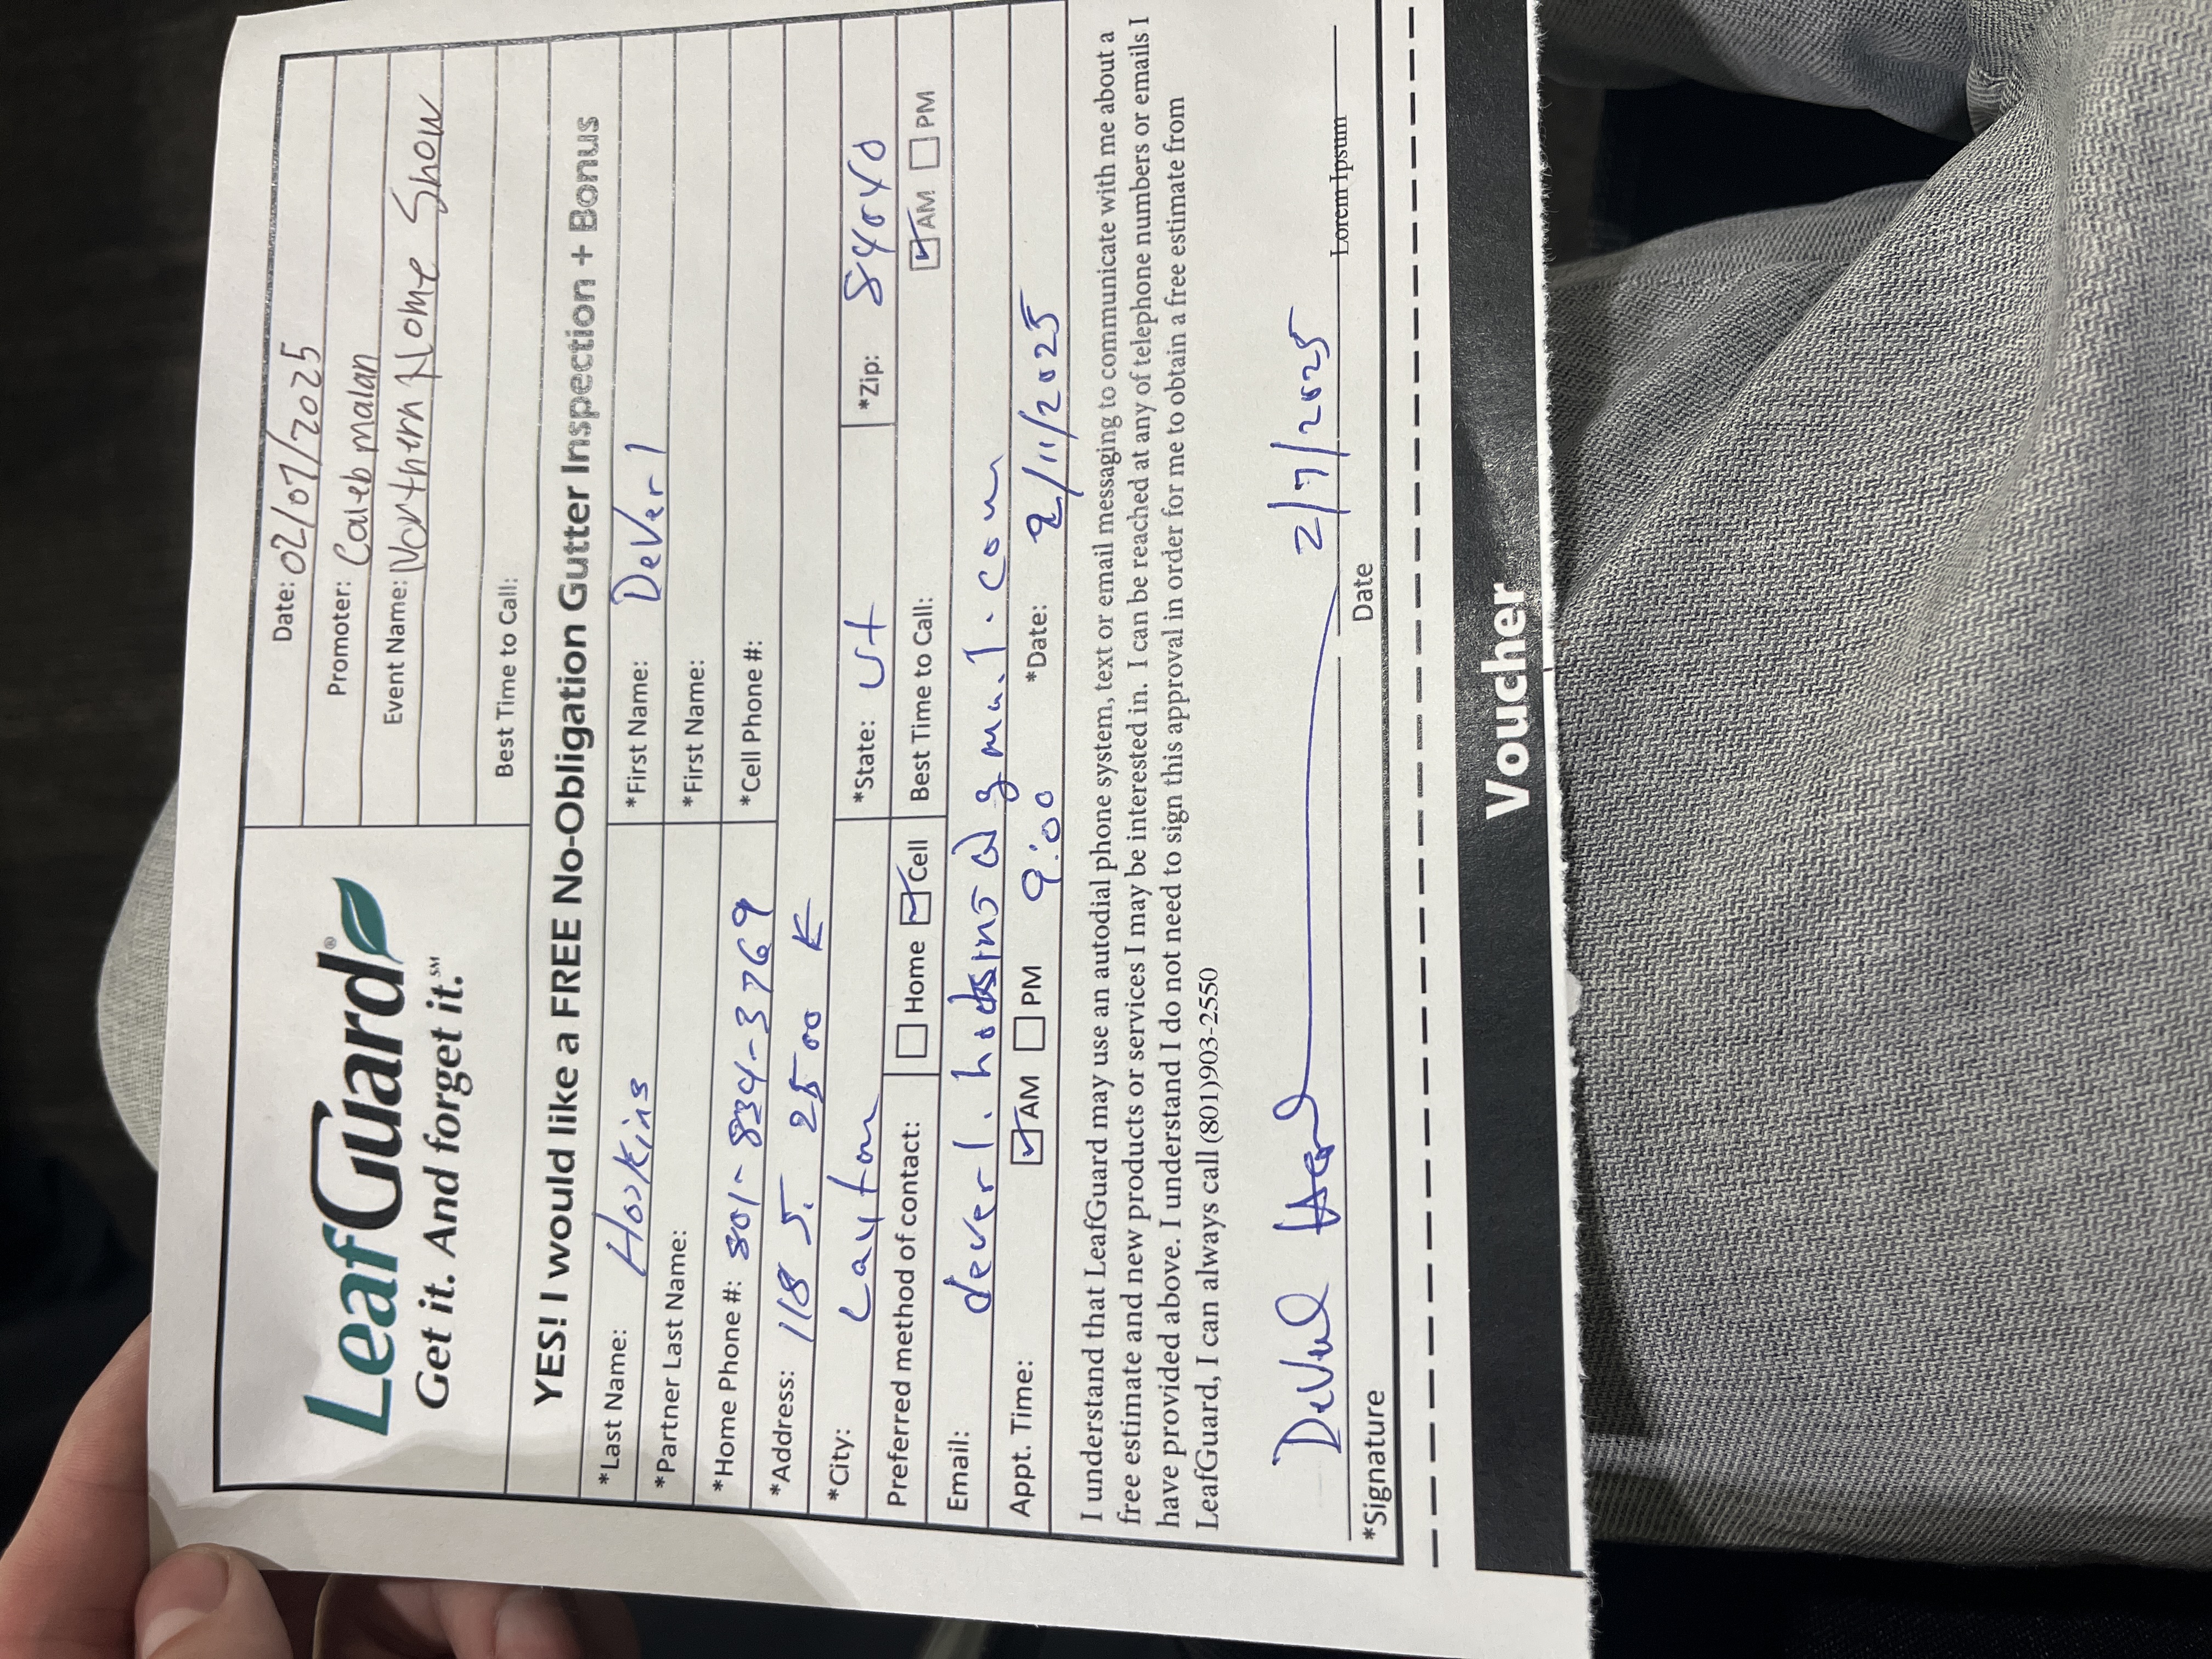 LeafGuard®
Get it. And forget it.℠
Date: 02/07/2025
Promoter: Caleb malan
Event Name: Northern Home Show
Best Time to Call:
YES! I would like a FREE No-Obligation Gutter Inspection + Bonus
*Last Name: Hoskins *First Name: DeVerl
*Partner Last Name: *First Name:
*Home Phone #: 801-834-3769 *Cell Phone #:
*Address: 118 S. 2500 E
*City: Layton *State: Ut *Zip: 84040
Preferred method of contact: Home Cell Best Time to Call: AM PM
Email: deverl.hoskins@gmail.com
Appt. Time: AM PM 9:00 *Date: 2/11/2025
I understand that LeafGuard may use an autodial phone system, text or email messaging to communicate with me about a
free estimate and new products or services I may be interested in. I can be reached at any of telephone numbers or emails I
have provided above. I understand I do not need to sign this approval in order for me to obtain a free estimate from
LeafGuard, I can always call (801)903-2550
DeVerl 2/7/2025
Lorem Ipsum
*Signature Date
Voucher